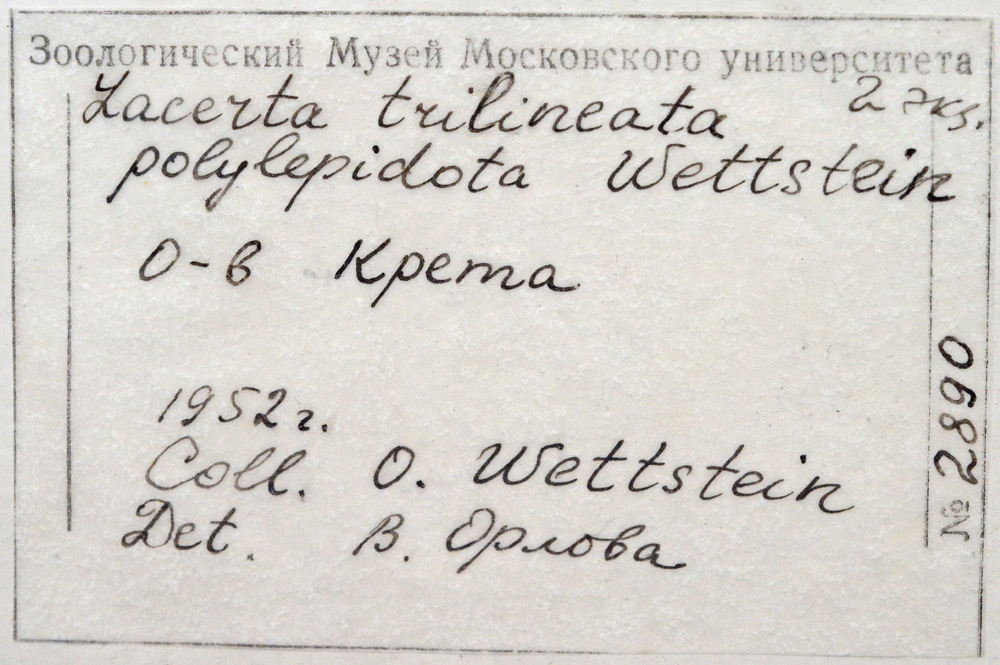 Зоологический Музей Московского университета
Lacerta trilineata 2 экз.
polylepidota Wettstein
О-в Крета
1952 г.
Coll. O. Wettstein
Det. В. Орлова
№ 2890